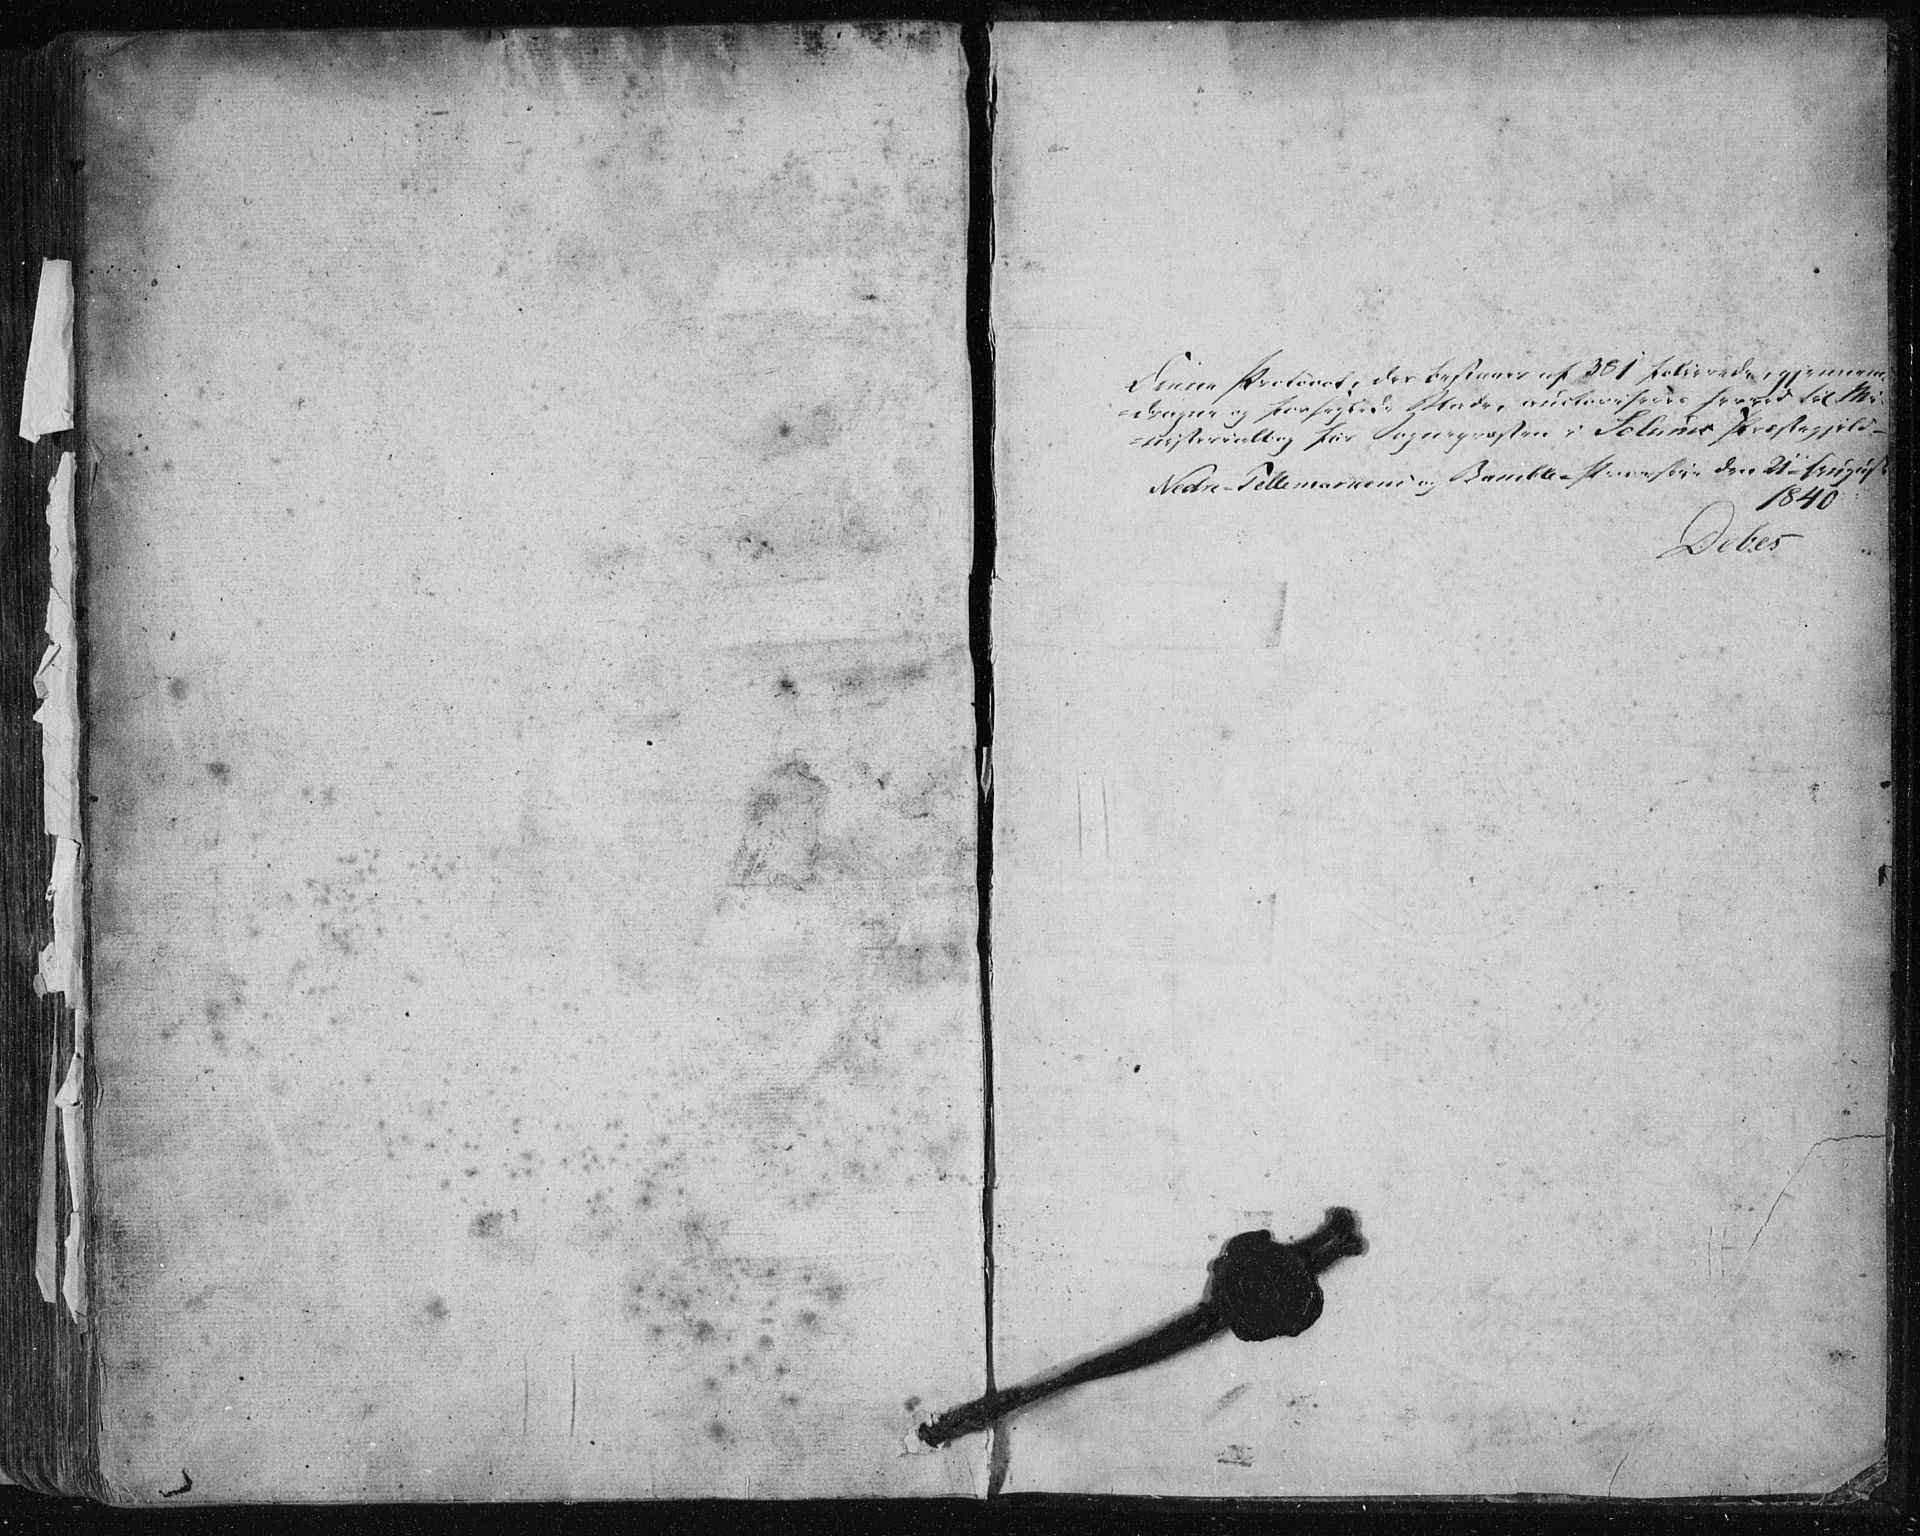 Denne Protocol, der bestaaer af 381 folierede, gjennem-
=dragne og forseglede Blade, auctoriseres herved til Mi-
=nisterialbog for Sognepræsten i Solums Præstegjeld.
Nedre-Tellemarkens og Bamble-Provstie den August
1840
Debes